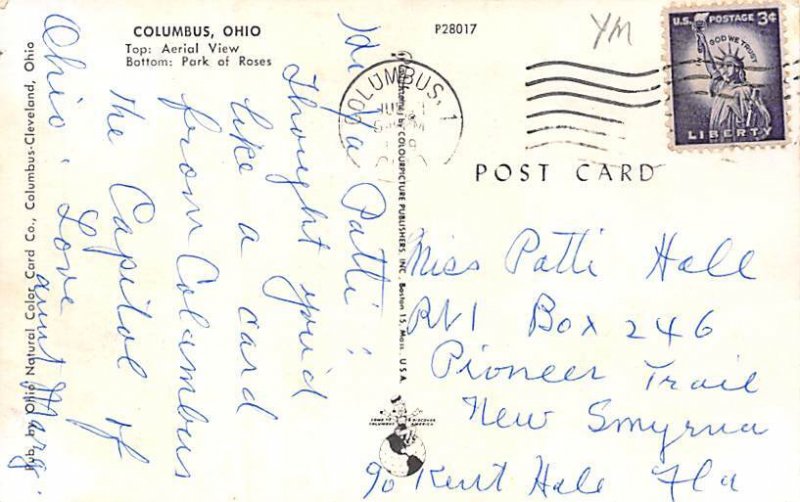 COLUMBUS, OHIO
Top: Aerial View
Bottom: Park of Roses
P28017
YM
U.S. POSTAGE 3¢
IN GOD WE TRUST
LIBERTY
COLUMBUS, 1
POST CARD
Hi Ya Patti!
Thought you'd
like a card
from Columbus
the Capitol of
Ohio. Love
aunt Marg.
Miss Patti Hall
Rt 1 Box 246
Pioneer Trail
New Smyrna
℅ Kent Hale Fla
Pub. by Ohio Natural Color Card Co., Columbus-Cleveland, Ohio
by COLOURPICTURE PUBLISHERS, INC., Boston 15, Mass. U.S.A.
COME TO DISCOVER
COLUMBUS AMERICA